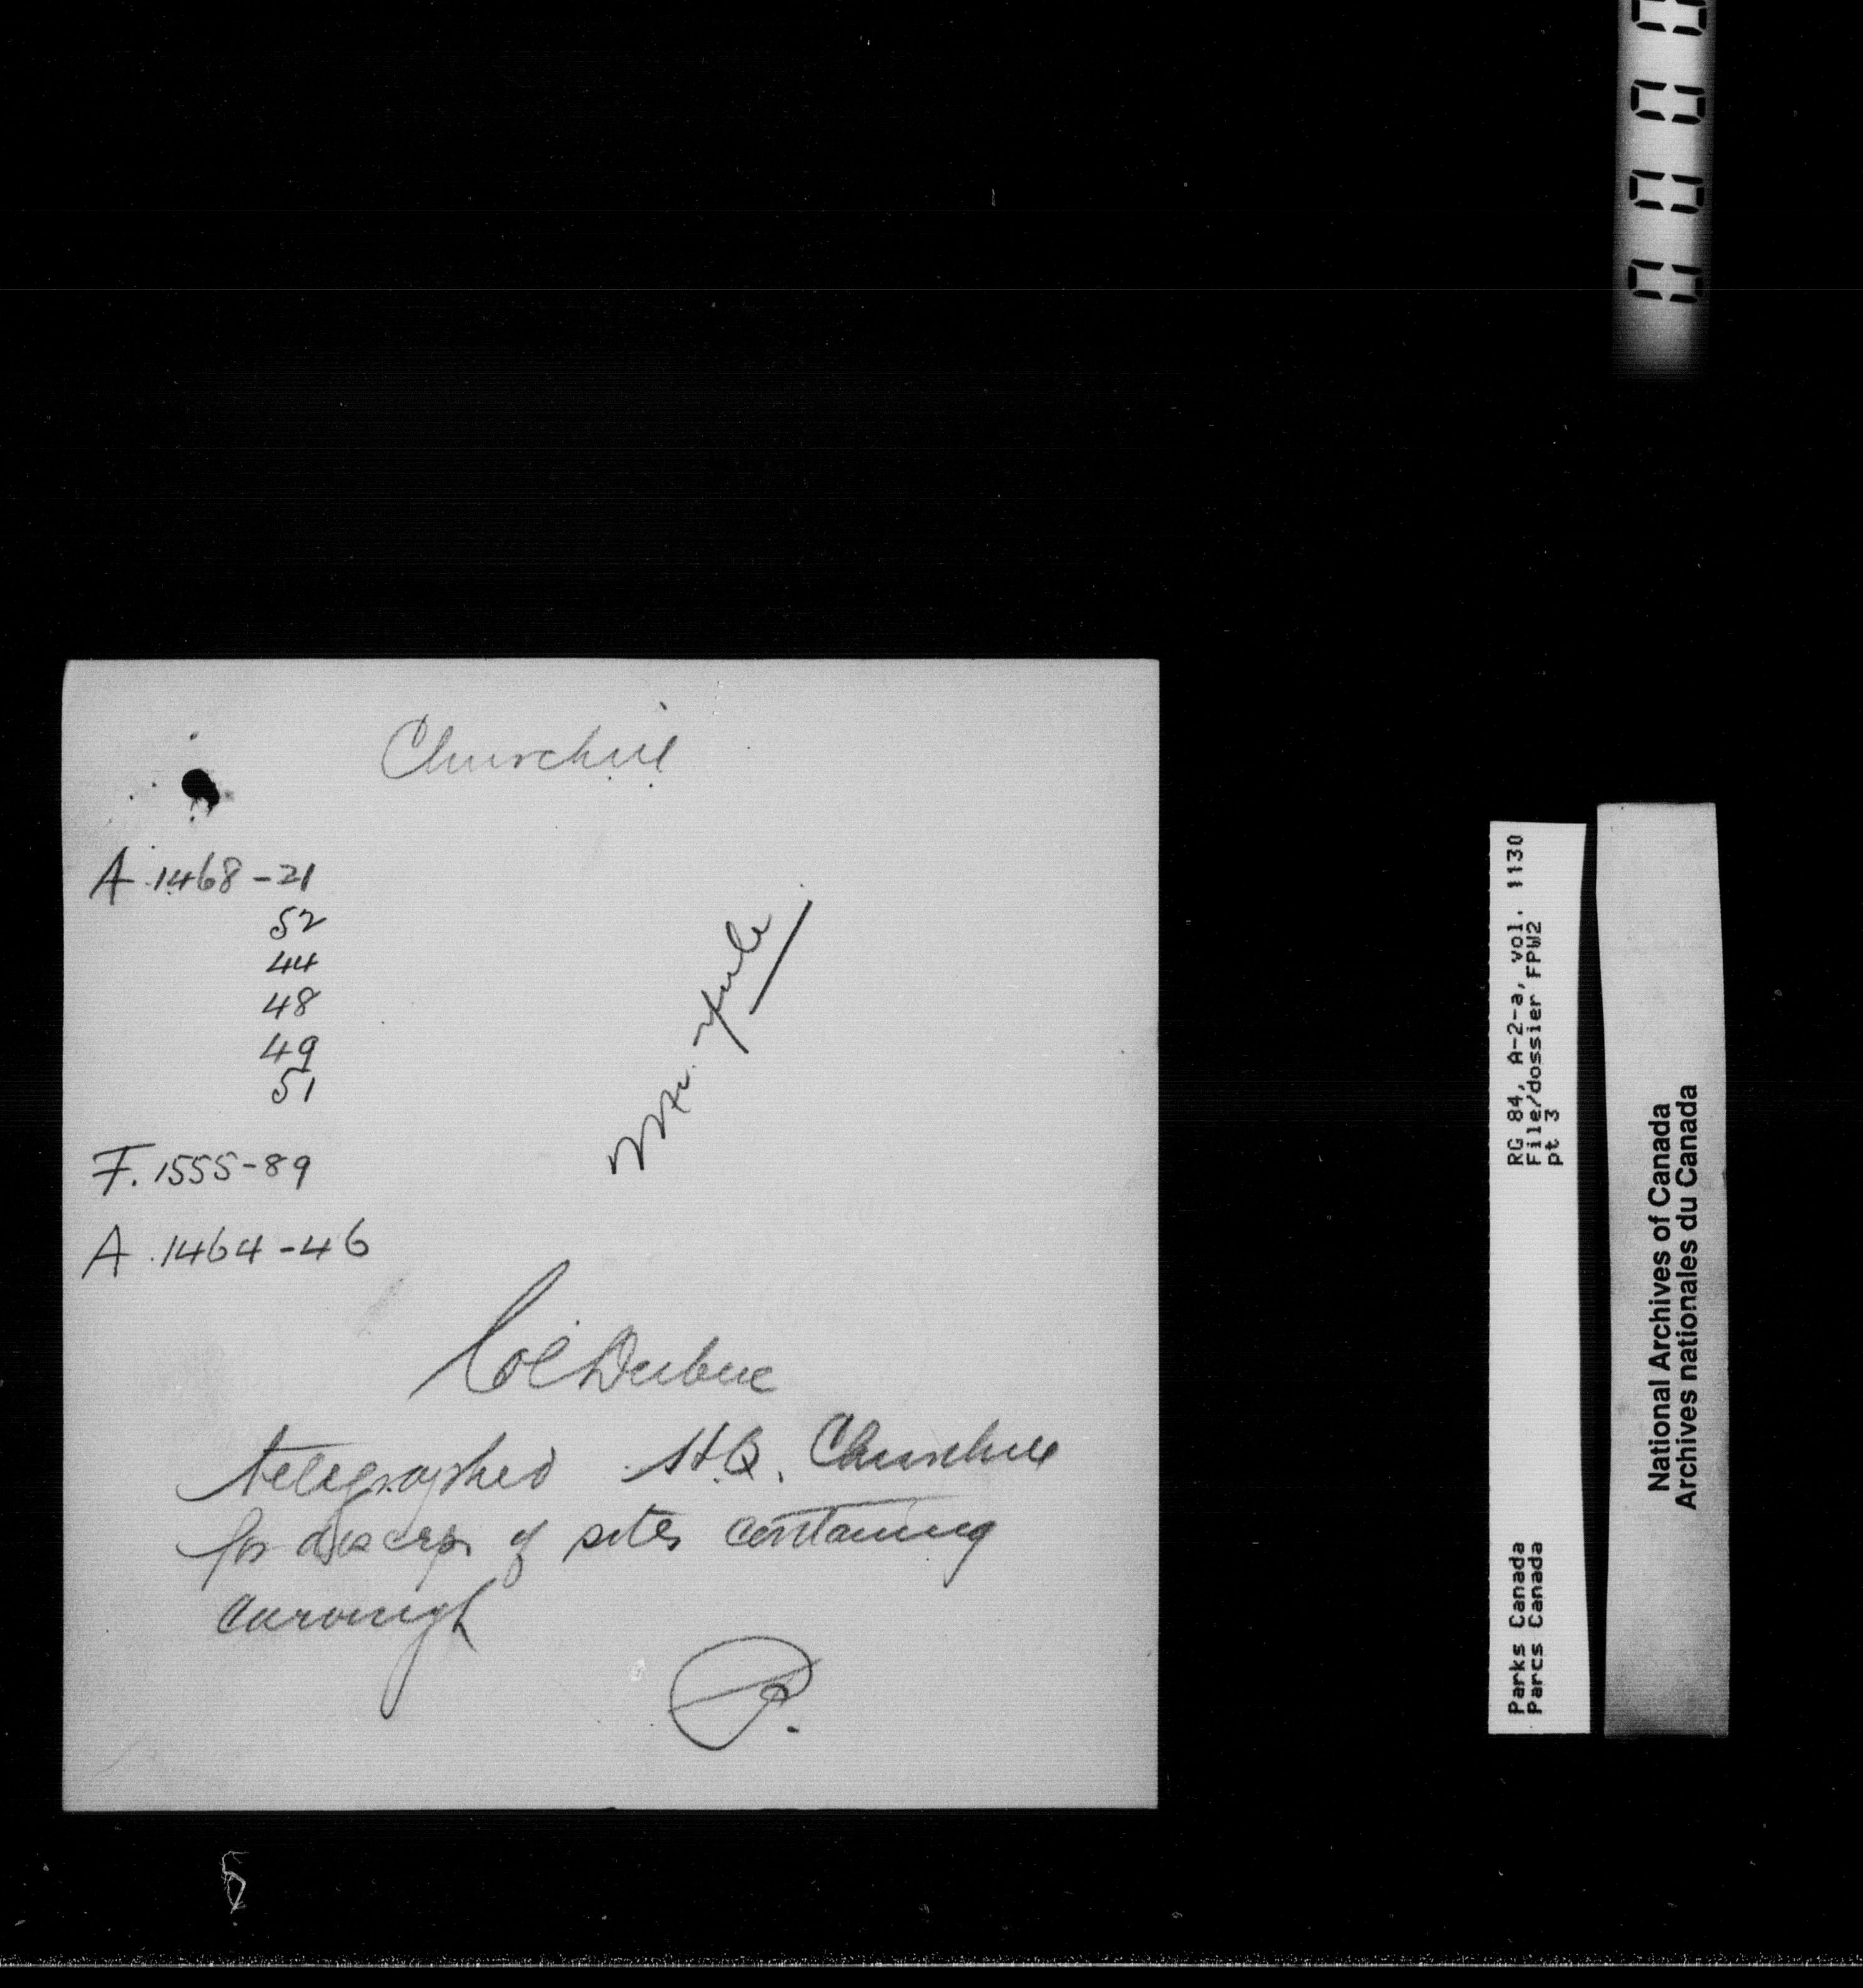 Churchill
A.1468-21
52
44
48
49
51
Mr. Yule
F.1555-89
A.1464-46
Col Dubuc
telegraphed H.Q. Churchill
for descrp. of sites containing
RG 84, A-2-a, vol. 1130
File/dossier FPW2
pt 3
Parks Canada
Parcs Canada
National Archives of Canada
Archives nationales du Canada